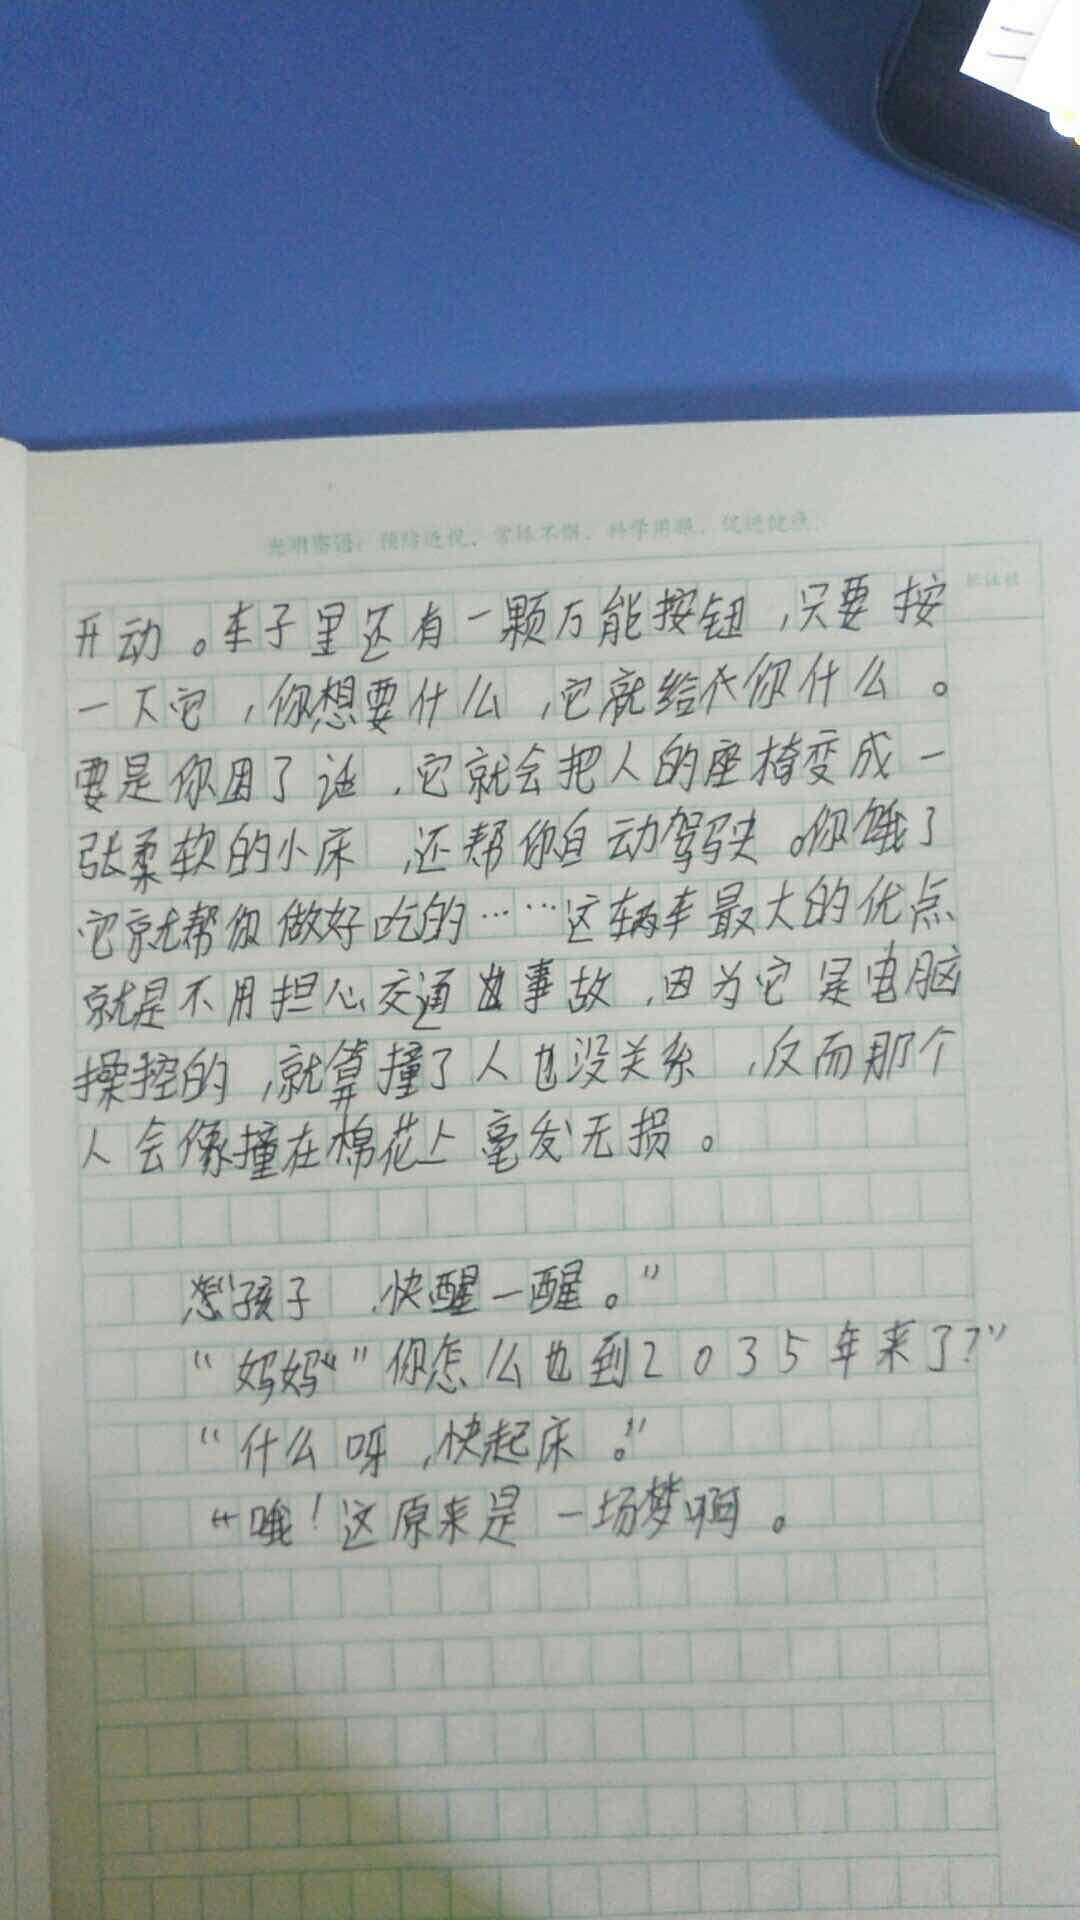 光明寄语：预防近视，常抓不懈，科学用眼，促进健康。
开动。车子里还有一颗万能按钮，只要按
一下它，你想要什么，它就给你什么。
要是你困了话，它就会把人的座椅变成一
张柔软的小床，还帮你自动驾驶。你饿了
它就帮你做好吃的……这辆车最大的优点
就是不用担心交通事故，因为它是电脑
操控的，就算撞了人也没关系，反而那个
人会像撞在棉花上毫发无损。
“孩子，快醒一醒。”
“妈妈“”你怎么也到2035年来了？”
“什么呀，快起床。”
“哦！这原来是一场梦啊。